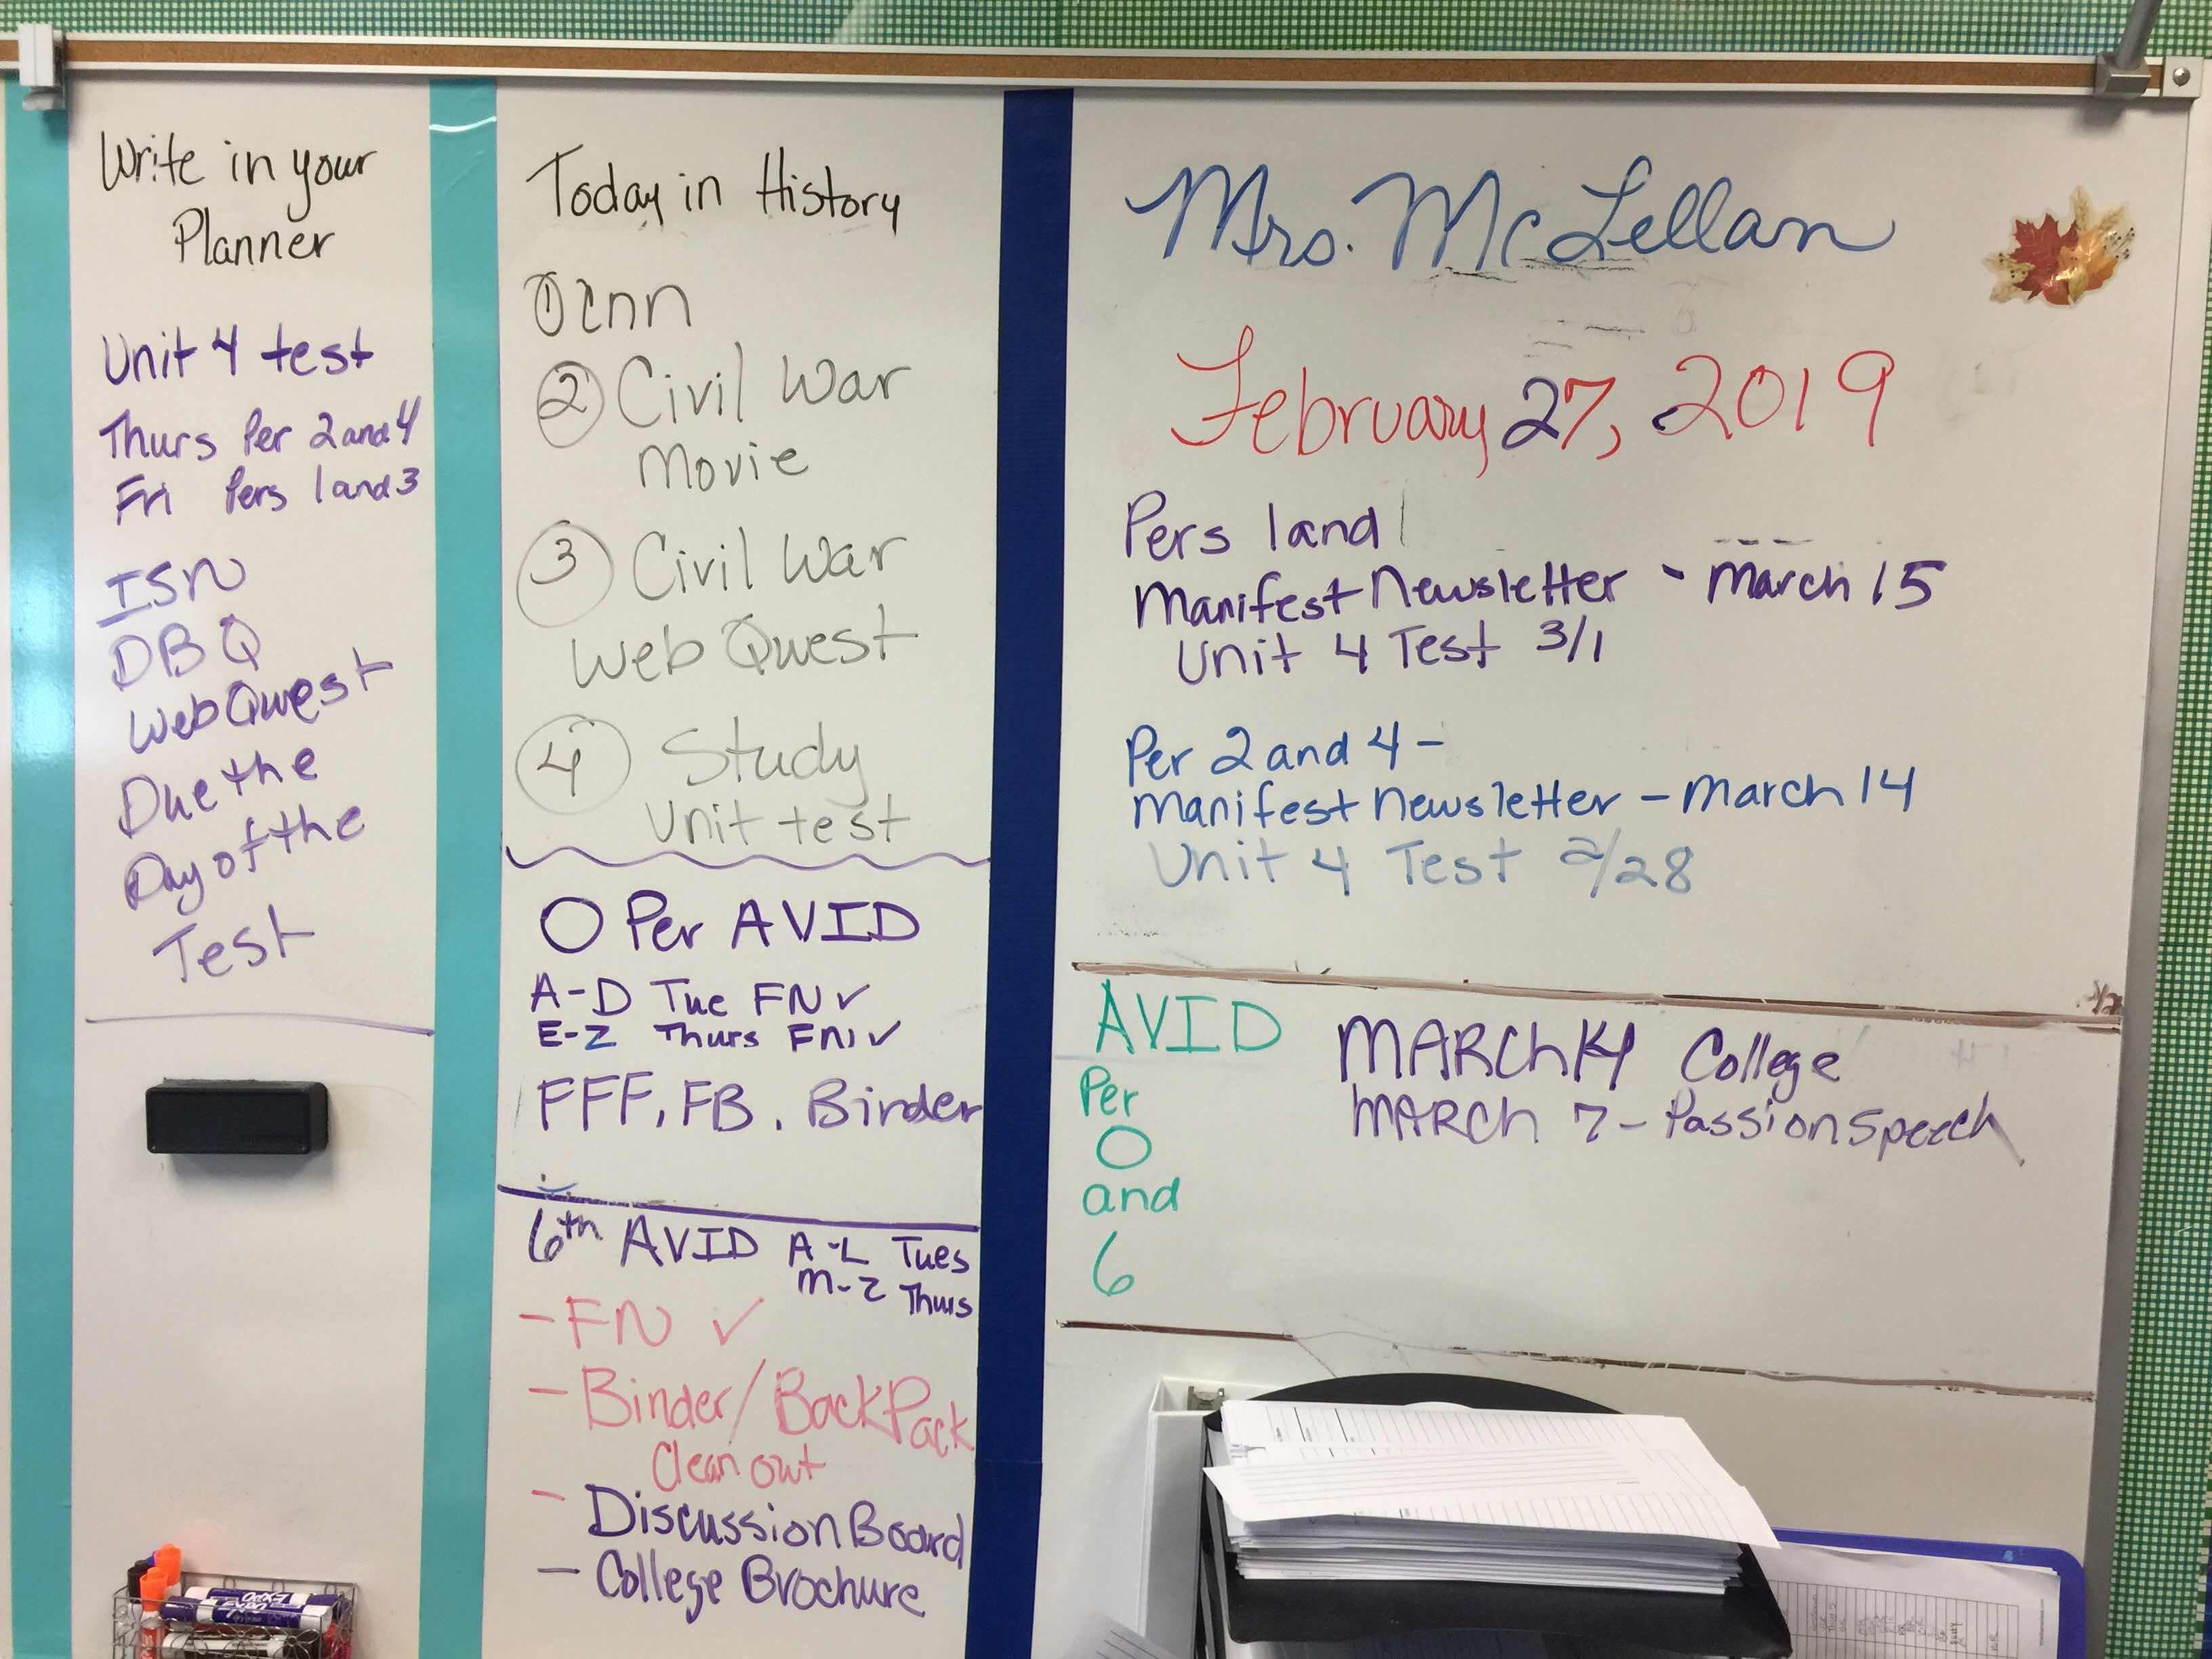 Write in your
Planner
Unit 4 test
Thurs Per 2 and 4
Fri Pers 1 and 3
ISN
DBQ
WebQuest
Due the
Day of the
Test
Today in History
① Cnn
② Civil War
Movie
③ Civil War
Web Quest
④ Study
Unit test
O Per AVID
A-D Tue FN ✓
E-Z Thurs FN ✓
FFF, FB, Binder
6th AVID A-L Tues
M-Z Thurs
- FN ✓
- Binder/BackPack
Clean out
- Discussion Board
- College Brochure
Mrs. McLellan
February 27, 2019
Pers 1 and
Manifest Newsletter - March 15
Unit 4 Test 3/1
Per 2 and 4 -
Manifest Newsletter - March 14
Unit 4 Test 2/28
AVID
Per
O
and
6
MARCh 14 College
MARCh 7 - Passion Speech
EXPO